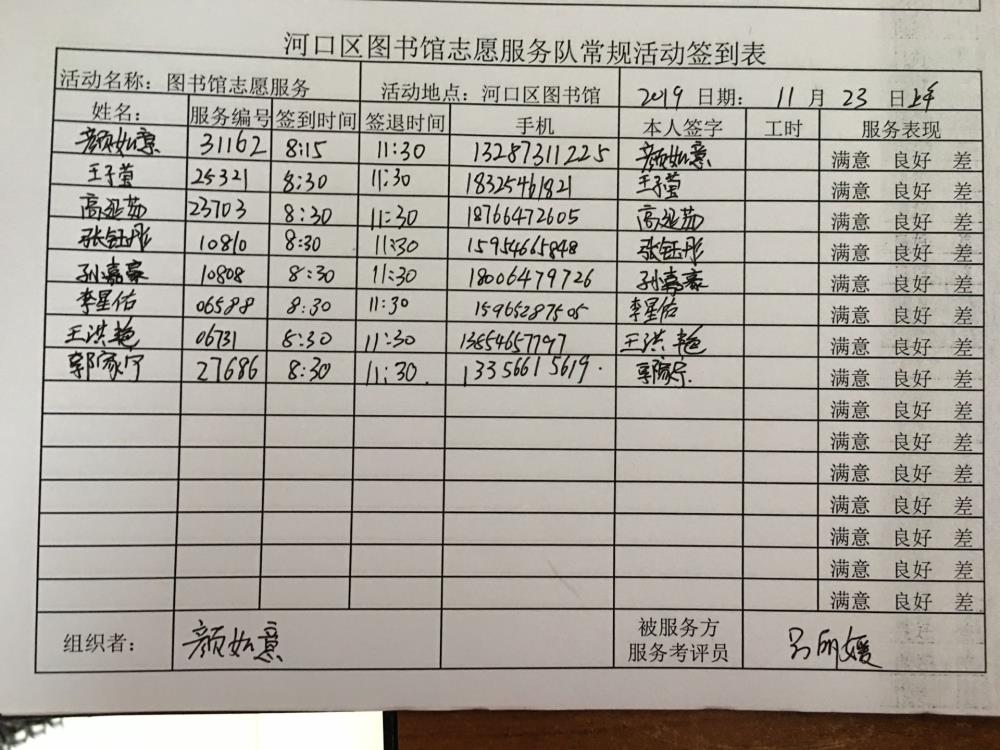 河口区图书馆志愿服务队常规活动签到表
活动名称：图书馆志愿服务 活动地点：河口区图书馆 2019 日期： 11 月 23 日上午
姓名： 服务编号 签到时间 签退时间 手机 本人签字 工时 服务表现
颜如意 31162 8:15 11:30 13287311225 颜如意 满意 良好 差
王子莹 25321 8:30 11:30 18325461821 王子莹 满意 良好 差
高亚茹 23703 8:30 11:30 18766472605 高亚茹 满意 良好 差
张钰彤 10810 8:30 11:30 15954665848 张钰彤 满意 良好 差
孙嘉豪 10808 8:30 11:30 18006479726 孙嘉豪 满意 良好 差
李星佑 06588 8:30 11:30 15965287505 李星佑 满意 良好 差
王洪艳 06731 8:30 11:30 13654657797 王洪艳 满意 良好 差
郭家宁 27686 8:30 11:30. 13356615619. 郭家宁 满意 良好 差
满意 良好 差
满意 良好 差
满意 良好 差
满意 良好 差
满意 良好 差
满意 良好 差
满意 良好 差
组织者： 颜如意 被服务方
服务考评员 吕丽媛